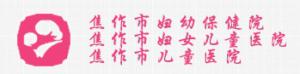 焦作市妇幼保健院
焦作市妇女儿童医院
焦作市儿童医院